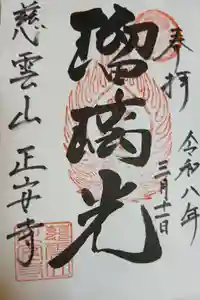 奉拝
令和八年
三月十一日
瑠璃光
慈雲山 正安寺